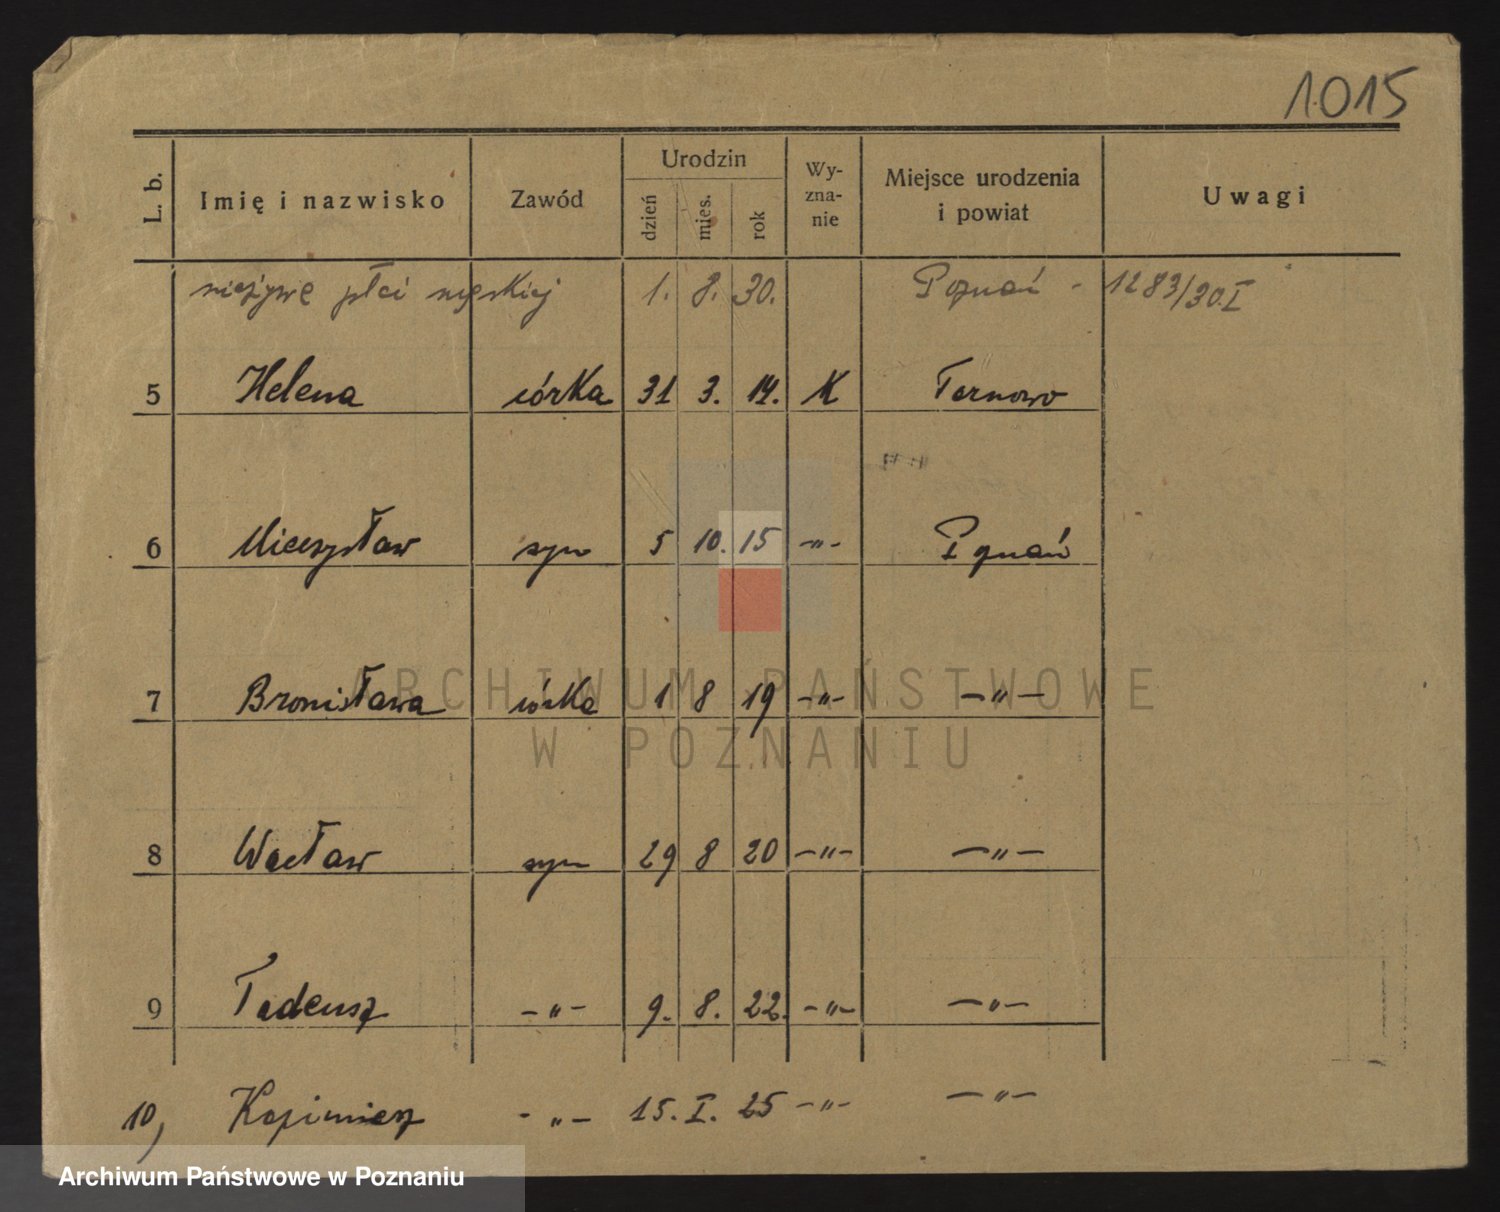 1015
L. b. Imię i nazwisko Zawód Urodzin dzień mies. rok Wy-zna-nie Miejsce urodzenia i powiat Uwagi
nieżywe płci męskiej 1. 8. 30. Poznań - 1283/30.I
5 Helena córka 31 3. 14. K Tarnowo
6 Mieczysław syn 5 10. 15 -„- Poznań
7 Bronisława córka 1 8 19 -„- -„-
ARCHIWUM PAŃSTWOWE
W POZNANIU
8 Wacław syn 29 8 20 -„- -„-
9 Tadeusz -„- 9. 8. 22. -„- -„-
10, Kazimierz -„- 15. I. 25 -„- -„-
Archiwum Państwowe w Poznaniu